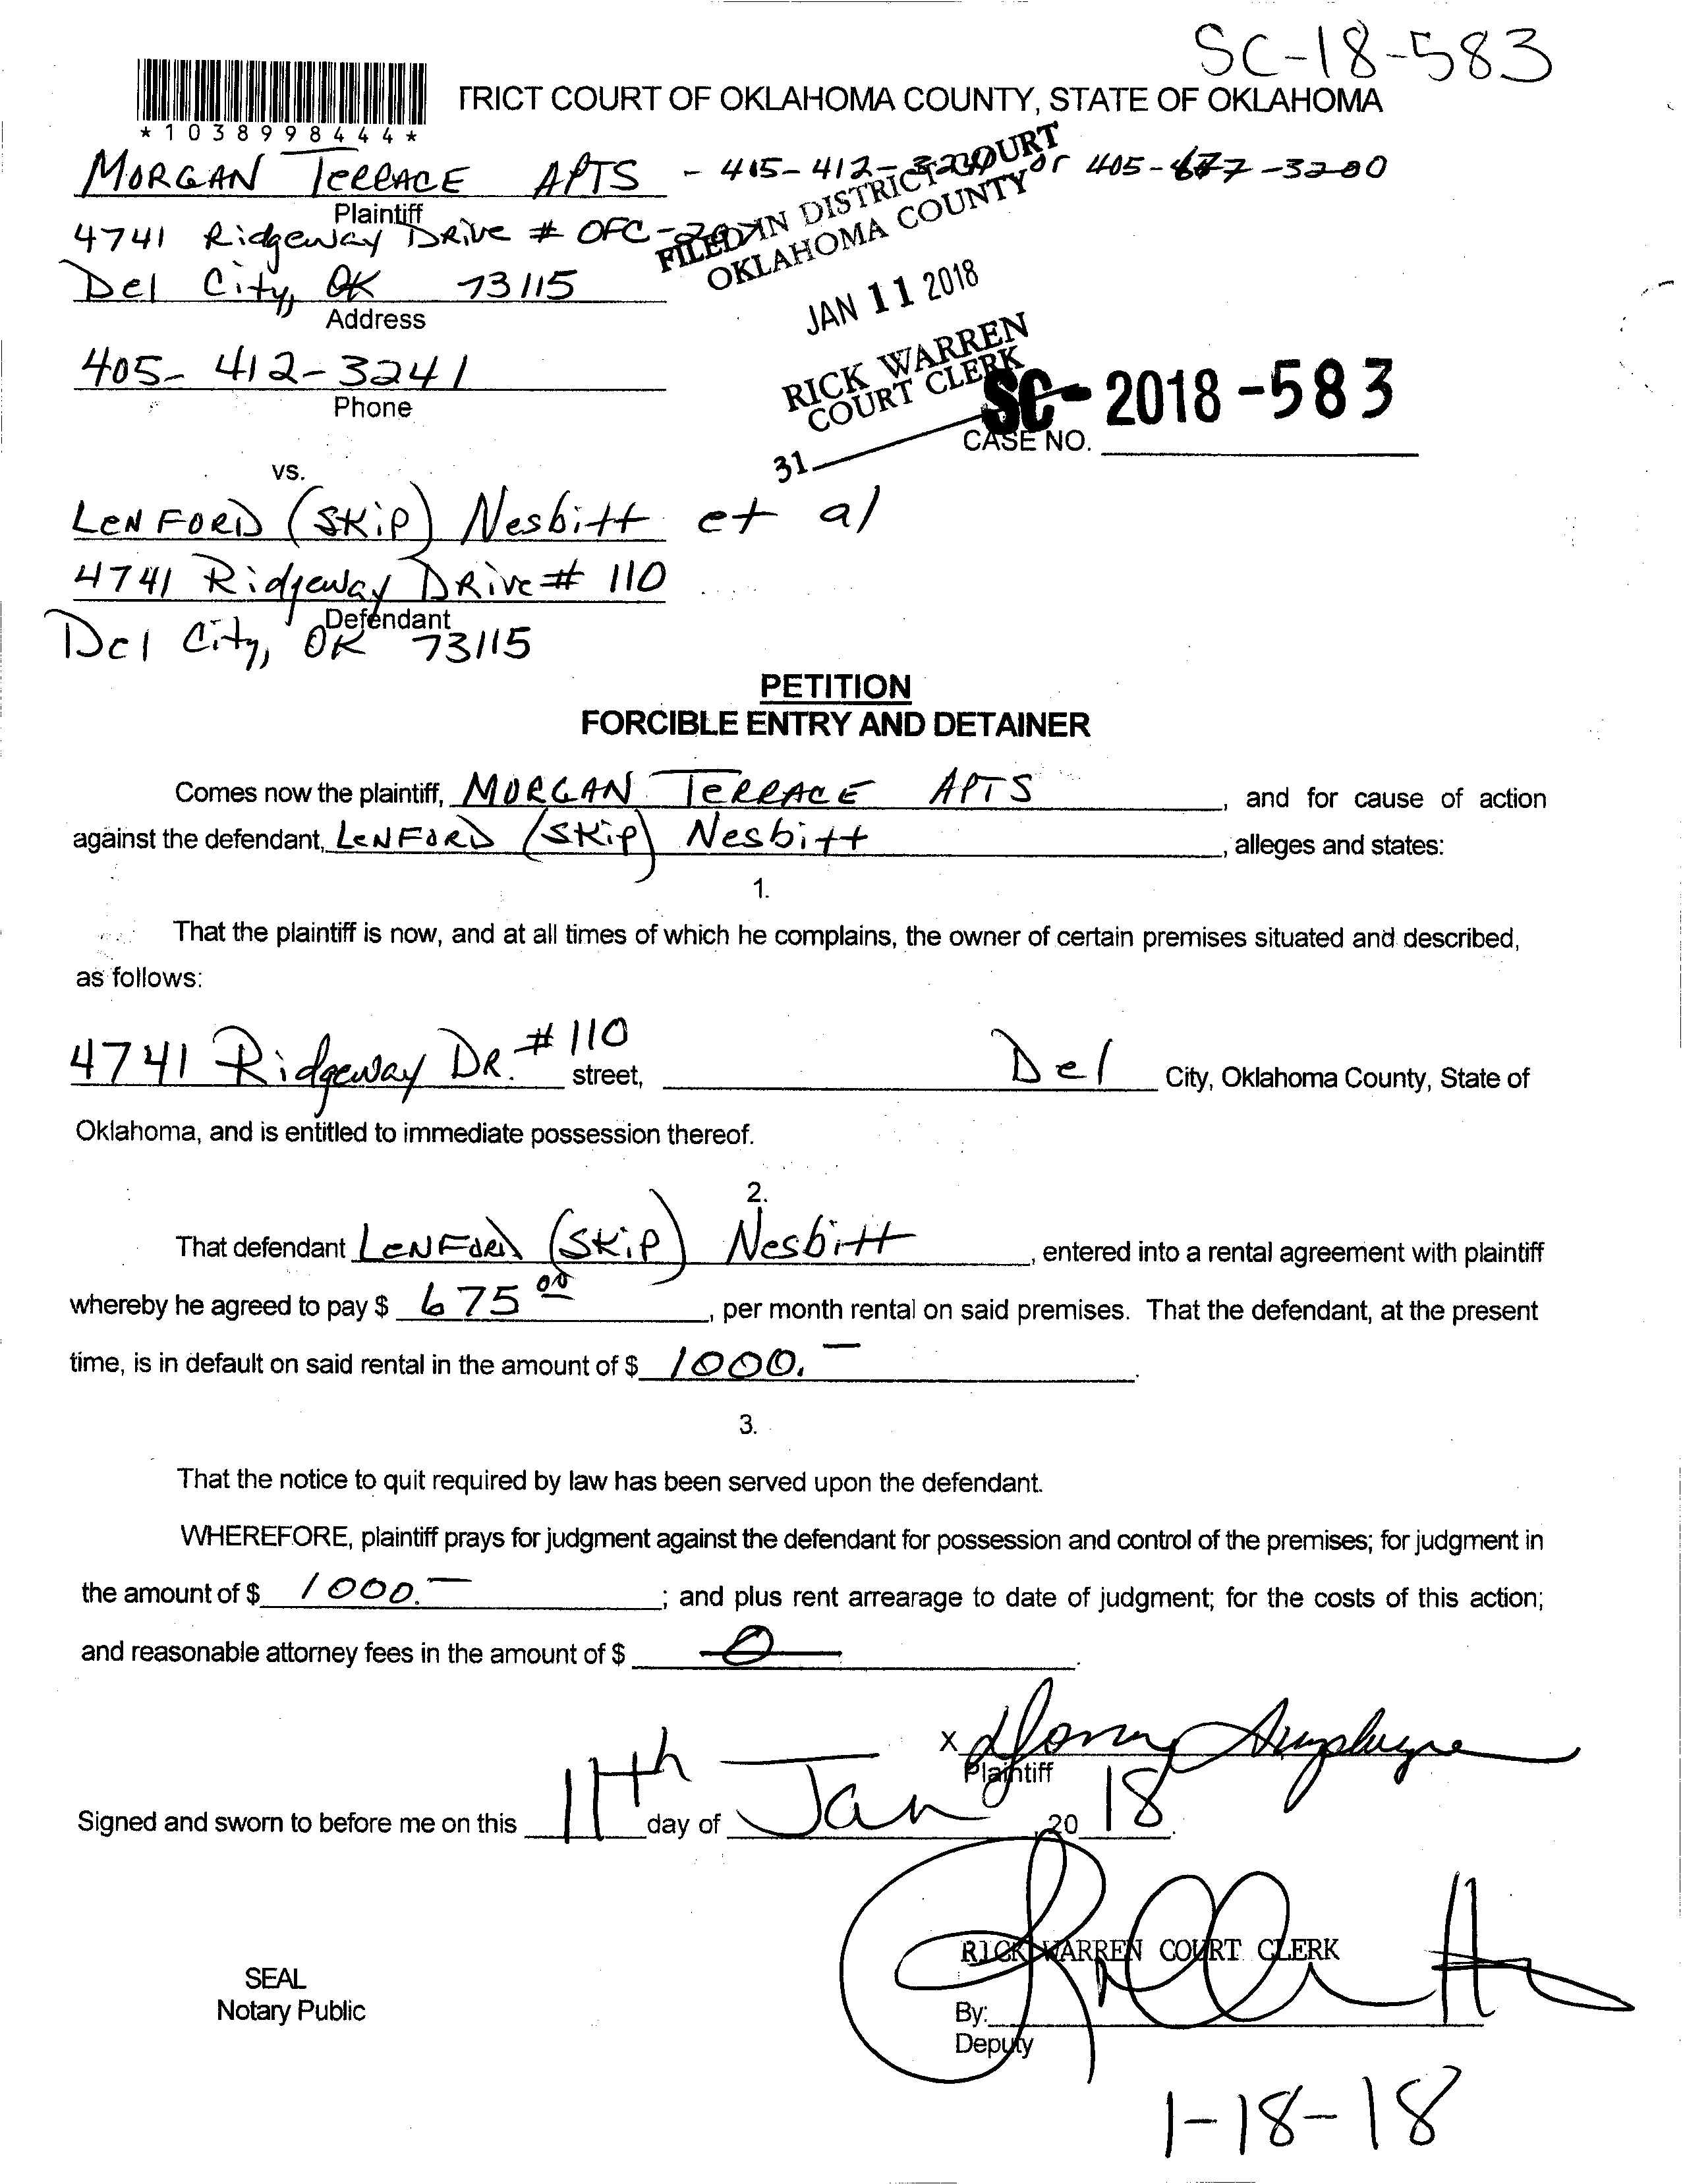 SC-18-583
TRICT COURT OF OKLAHOMA COUNTY, STATE OF OKLAHOMA
*1038998444*
MORGAN TERRACE APTS - 405-412-3241 or 405-677-3200
Plaintiff
4741 Ridgeway DRive # OFC-
FILED IN DISTRICT COURT
OKLAHOMA COUNTY
Del City, OK 73115
Address
JAN 11 2018
405-412-3241
Phone
RICK WARREN
COURT CLERK
SC-2018-583
CASE NO.
31
vs.
LENFORD (SKip) Nesbitt et al
4741 Ridgeway DRive # 110
Defendant
Del City, OK 73115
PETITION
FORCIBLE ENTRY AND DETAINER
Comes now the plaintiff, MORGAN TERRACE APTS, and for cause of action
against the defendant, LENFORD (SKip) Nesbitt, alleges and states:
1.
That the plaintiff is now, and at all times of which he complains, the owner of certain premises situated and described,
as follows:
4741 Ridgeway DR. # 110 street, Del City, Oklahoma County, State of
Oklahoma, and is entitled to immediate possession thereof.
2.
That defendant LENFORD (SKip) Nesbitt, entered into a rental agreement with plaintiff
whereby he agreed to pay $ 675 00, per month rental on said premises. That the defendant, at the present
time, is in default on said rental in the amount of $ 1000.—.
3.
That the notice to quit required by law has been served upon the defendant.
WHEREFORE, plaintiff prays for judgment against the defendant for possession and control of the premises; for judgment in
the amount of $ 1000.—; and plus rent arrearage to date of judgment; for the costs of this action;
and reasonable attorney fees in the amount of $ 0.
X
Plaintiff
Signed and sworn to before me on this 11th day of Jan, 20 18.
RICK WARREN COURT CLERK
SEAL
Notary Public
By:
Deputy
1-18-18